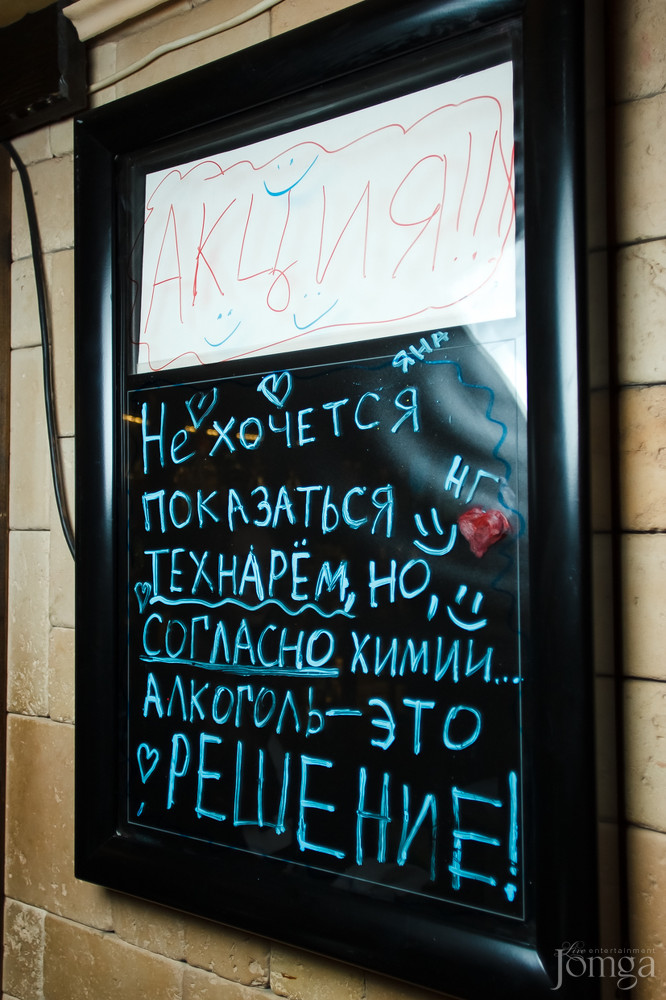 АКЦИЯ!!!
ЯНА
Не хочется
показаться
НГ
ТЕХНАРЁМ, НО,
СОГЛАСНО ХИМИИ...
АЛКОГОЛЬ-ЭТО
РЕШЕНИЕ!
Live entertainment
Jomga